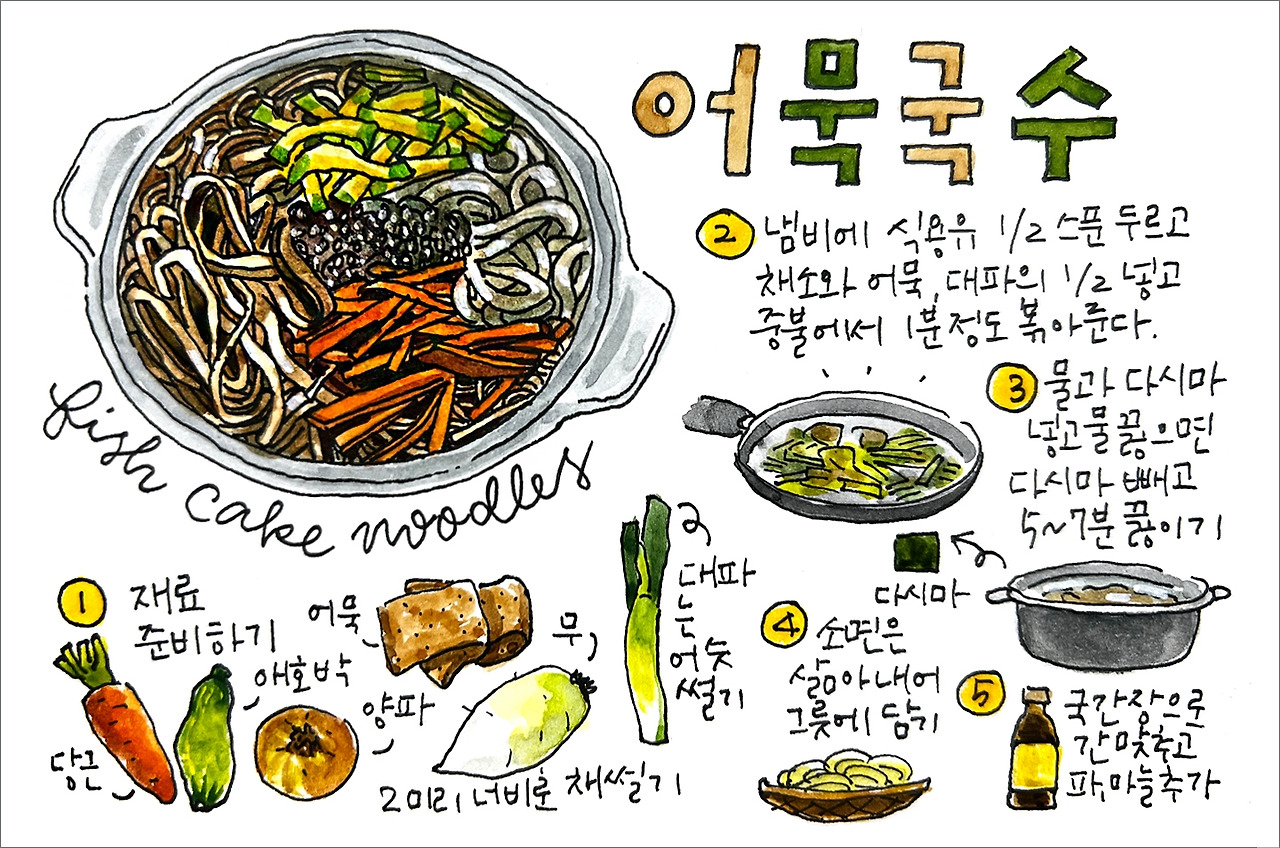 어묵국수
fish cake noodles
1 재료
준비하기
당근
애호박
양파
어묵
무,
2미리 너비로 채썰기
대파
는
어슷
썰기
2 냄비에 식용유 1/2 스푼 두르고
채소와 어묵, 대파의 1/2 넣고
중불에서 1분정도 볶아준다.
3 물과 다시마
넣고 물 끓으면
다시마 빼고
5~7분 끓이기
다시마
4 소면은
삶아내어
그릇에 담기
5 국간장으로
간 맞추고
파, 마늘 추가